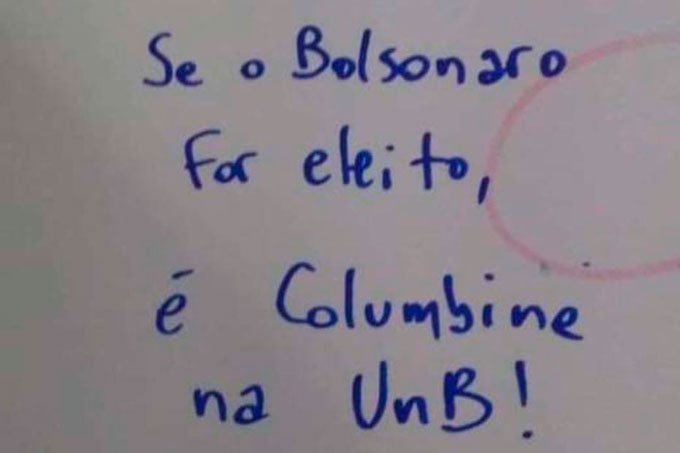 Se o Bolsonaro
for eleito,
é Columbine
na UnB!